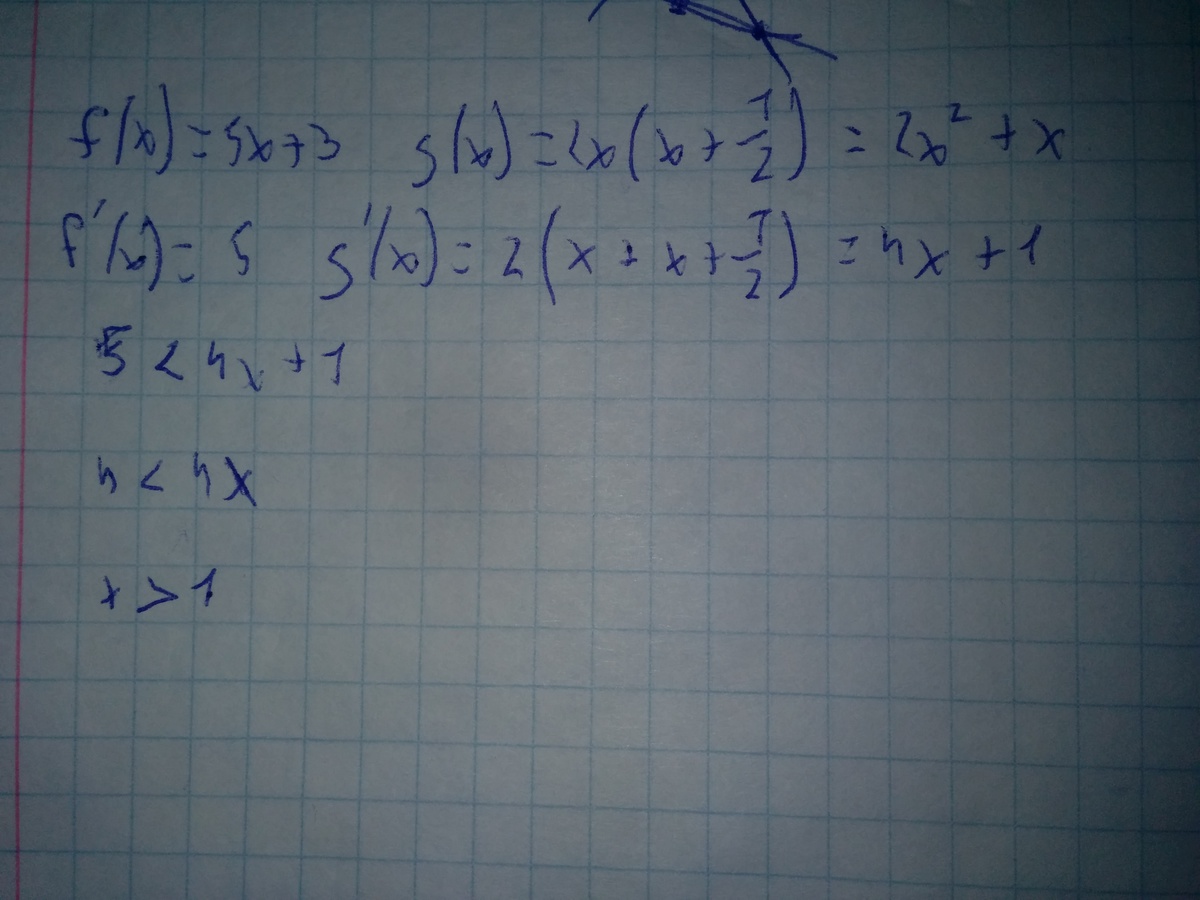 f(x) = 5x+3 g(x) = 2x(x + 1/2) = 2x² + x
f'(x) = 5 g'(x) = 2(x + x + 1/2) = 4x + 1
5 < 4x + 1
4 < 4x
x > 1